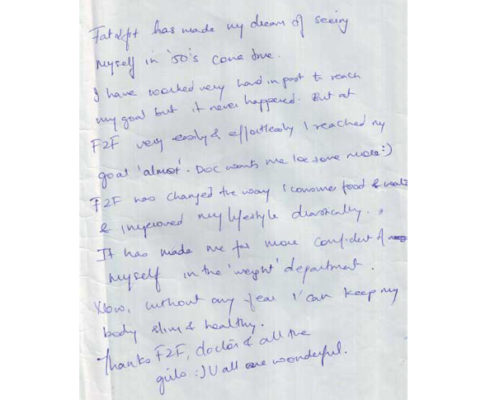 Fat2fit has made my dream of seeing
myself in '50's come true.
I have worked very hard in past to reach
my goal but it never happened. But at
F2F very easily & effortlessly I reached my
goal 'almost'. Doc wants me lose some more :)
F2F has changed the way I consume food &
& improved my lifestyle drastically.
It has made me far more confident of
myself in the 'weight' department.
Now, without any fear I can keep my
body slim & healthy.
Thanks F2F, doctor & all the
girls :) U all are wonderful.